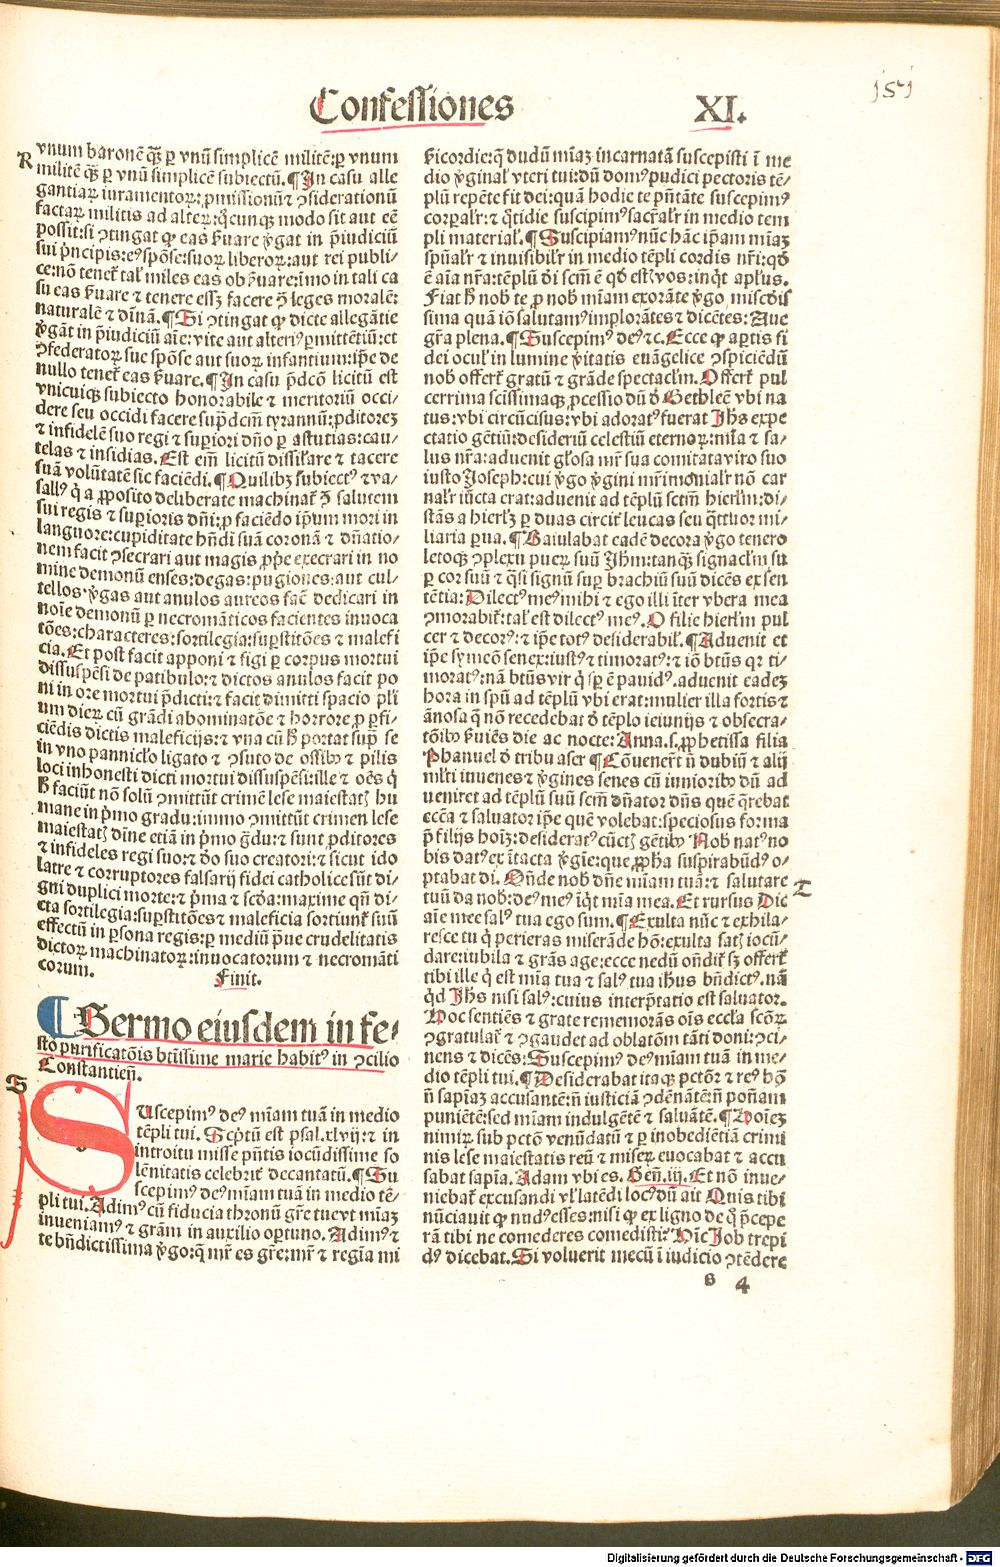 Confessiones XI.
151
R
vnum baronē qȝ̄ ꝑ vnū simplicē militē: ꝑ vnum
militē qȝ̄ ꝑ vnū simplicē subiectū. ¶ In casu alle
gantiaꝝ iuramentoꝝ: ꝓmissionū ⁊ ꝯsiderationū
factaꝝ militis ad alteꝝ: q̄cunqȝ modo sit aut eē
possit: si ꝯtingat ꝙ eas ẜuare v̓gat in p̄iudiciū
sui pͥncipis: eiꝰ spōse: suoꝝ liberoꝝ: aut rei publi⸗
ce: nō tenet᷑ tal̓ miles eas obẜuare: imo in tali ca
su eas ẜuare ⁊ tenere essȝ facere ꝯ̄ leges moralē:
naturalē ⁊ diūnā. ¶ Si ꝯtingat ꝙ dicte allegātie
v̓gāt in p̄iudiciū aīe: vite aut alteriꝰ ꝑmittētiū: et
ꝯfederatoꝝ sue spōse aut suoꝝ infantium: ip̄e de
nullo tenet᷑ eas ẜuare. ¶ In casu p̄dcō licitū est
vnicuiqȝ subiecto honorabile ⁊ meritoriū occi⸗
dere seu occidi facere sup̄dcm̄ tyrannū: ꝓditoreȝ
⁊ infidelē suo regi ⁊ supiori dn̄o ꝑ astutias: cau⸗
telas ⁊ insidias. Est em̄ licitū dissil̓are ⁊ tacere
suā volūtatē sic faciēdi. ¶ Quilibȝ subiectꝰ ⁊ va⸗
sallꝰ q̓ a ꝓposito deliberate machinat᷑ ꝯ̄ salutem
sui regis ⁊ supioris dn̄i: ꝓ faciēdo ip̄um mori in
languore: cupiditate hn̄di suā coronā ⁊ dn̄atio⸗
nem facit ꝯsecrari aut magis ꝓp̄e execrari in no
mine demonū enses: degas: pugiones: aut cul⸗
tellos: v̓gas aut anulos aureos fac̄ dedicari in
noīe demonū ꝑ necromāticos facientes inuoca
tōes: characteres: sortilegia: sup̄stitōes ⁊ malefi
cia. Et post facit apponi ⁊ figi ꝑ corpus mortui
dissuspēsi de patibulo: ⁊ dictos anulos facit po
ni in ore mortui p̄dicti: ⁊ facit dimitti spacio pl̓i
um dieꝝ cū grādi abominatōe ⁊ horrore ꝓ ꝑfi⸗
ciēdis dictis maleficijs: ⁊ vna cū ħ portat sup̄ se
in vno pannicl̓o ligato ⁊ ꝯsuto de ossibꝰ ⁊ pilis
loci inhonesti dicti mortui dissuspēsi: ille ⁊ oēs q̓
ħ faciūt nō solū ꝯmittūt crimē lese maiestatꝭ hu
mane in pͥmo gradu: immo ꝯmittūt crimen lese
maiestatꝭ diūne etiā in pͥmo g̓du: ⁊ sunt ꝓditores
⁊ infideles regi suo: ⁊ deo suo creatori: ⁊ sicut ido
latre ⁊ corruptores falsarij fidei catholice sūt di⸗
gni duplici morte: ⁊ pͥma ⁊ scd̓a: maxime qn̄ di⸗
cta sortilegia: sup̄stitōes ⁊ maleficia sortiunt᷑ suū
effectū in ꝑsona regis: ꝑ mediū p̄ue crudelitatis
dictoꝝ machinatoꝝ: inuocatorum ⁊ necromāti
corum. Finit.
¶ Sermo eiusdem in fe⸗
sto purificatōis btīssime marie habitꝰ in ꝯcilio
Constantieñ.
S
SUscepimꝰ deꝰ mīam tuā in medio
tēpli tui. Scp̄tū est psal. xlvij: ⁊ in
introitu misse pn̄tis iocūdissime so
lēnitatis celebrit̓ decantatū. ¶ Su
scepimꝰ deꝰ mīam tuā in medio tē⸗
pli tui. Adimꝰ cū fiducia thronū gr̄e tue vt mīaȝ
inueniamꝰ ⁊ gr̄am in auxilio oꝑtuno. Adimꝰ ⁊
te bn̄dictissima v̓go: q̄ mr̄ es gr̄e: mr̄ ⁊ regīa mi
ẜicordie: q̄ dudū mīaȝ incarnatā suscepisti ī me
dio v̓ginal̓ vteri tui: dū domꝰ pudici pectoris tē⸗
plū repēte fit dei: quā hodie te pn̄tāte suscepimꝰ
corꝑal̓r: ⁊ q̓tidie suscipimꝰ sacr̄al̓r in medio tem
pli material̓. ¶ Suscipiamꝰ nūc hāc ip̄am mīaȝ
spūal̓r ⁊ inuisibil̓r in medio tēpli cordis nr̄i: qd̓
ē aīa nr̄a: tēplū dī scm̄ ē qd̓ estꝭ vos: inq̓t apl̓us.
Fiat ħ nob̓ te ꝓ nob̓ mīam exorāte v̓go misc̓dis
sima quā iō salutamꝰ implorātes ⁊ dicētes: Aue
gr̄a plena. ¶ Suscepimꝰ deꝰ ⁊c. Ecce ꝙ aptis fi
dei ocul̓ in lumine v̓itatis euāgelice ꝯspiciēdū
nob̓ offert᷑ gratū ⁊ grāde spectacl̓m. Offert᷑ pul
cerrima scissimaqȝ ꝓcessio dū d̓ Bethleē vbi na
tus: vbi circūcisus: vbi adoratꝰ fuerat Jh̄s expe
ctatio gētiū: desideriū celestiū eternoꝝ: mīa ⁊ sa⸗
lus nr̄a: aduenit gl̓osa mr̄ sua comitata viro suo
iusto Joseph: cui v̓go v̓gini mr̄imonial̓r nō car
nal̓r iūcta erat: aduenit ad tēplū sctm̄ hierl̓m: di⸗
stās a hierl̓ȝ ꝑ duas circit̓ leucas seu q̄ttuor mi⸗
liaria ꝑua. ¶ Baiulabat eadē decora v̓go tenero
letoqȝ ꝯplexu pueꝝ suū Jh̄m: tanqȝ̄ signacl̓m su
ꝑ cor suū ⁊ q̄si signū suꝑ brachiū suū dicēs ex sen
tētia: Dilectꝰ meꝰ mihi ⁊ ego illi īter vbera mea
ꝯmorabit᷑: tal̓ est dilectꝰ meꝰ. O filie hierl̓m pul
cer ⁊ decorꝰ: ⁊ ip̄e totꝰ desiderabil̓. ¶ Aduenit et
ip̄e symeō senex: iustꝰ ⁊ timoratꝰ: ⁊ iō btūs qꝛ ti⸗
moratꝰ: nā btūs vir q̓ sꝑ ē pauidꝰ. aduenit eadeȝ
hora in spū ad tēplū vbi erat: mulier illa fortis ⁊
ānosa q̄ nō recedebat d̓ tēplo ieiunijs ⁊ obsecra⸗
tōibꝰ ẜuiēs die ac nocte: Anna. s. ꝓphetissa filia
Phanuel d̓ tribu aser ¶ Cōuenert̓ n̄ dubiū ⁊ alij
ml̓ti iuuenes ⁊ v̓gines senes cū iunioribꝰ dū ad
ueniret ad tēplū suū scm̄ dn̄ator dn̄s quē q̄rebat
eccā ⁊ saluator ip̄e quē volebat: speciosus forma
p̄ filijs hoīȝ: desideratꝰ cūctꝭ gētibꝰ Nob̓ natꝰ no
bis datꝰ ex ītacta v̓gīe: que ꝓpha suspirabūdꝰ o⸗
ptabat dī. On̄de nob̓ dn̄e mīam tuā: ⁊ salutare
tuū da nob̓: deꝰ meꝰ īq̓t mīa mea. Et rursus Dic
aīe mee salꝰ tua ego sum. ¶ Exulta nūc ⁊ exhila⸗
resce tu q̓ perieras miserāde hō: exulta satꝭ iocū⸗
dare: iubila ⁊ grās age: ecce nedū on̄dit᷑ sȝ offert᷑
tibi ille q̓ est mīa tua ⁊ salꝰ tua ih̄us bn̄dictꝰ. nā
qd̓ Jh̄s nisi salꝰ: cuius interp̄tatio est saluator.
Hoc sentiēs ⁊ grate rememorās oīs eccl̓a scōꝝ
ꝯgratulat᷑ ⁊ ꝯgaudet ad oblatōm tāti doni: ꝯci⸗
nens ⁊ dicēs: Suscepimꝰ deꝰ mīam tuā in me⸗
dio tēpli tui. ¶ Desiderabat itaqȝ pctōr ⁊ reꝰ hō
n̄ sapīaȝ accusantē: n̄ iusticiā ꝯdēnātē: n̄ poñam
puniētē: sed mīam indulgētē ⁊ saluātē. ¶ Hoīeȝ
nimiꝝ sub pctō venūdatū ⁊ ꝑ inobediētiā crimi
nis lese maiestatis reū ⁊ miseꝝ euocabat ⁊ accu
sabat sapīa. Adam vbi es. Gen̄. iij. Et nō inue⸗
niebat᷑ excusandi vl̓ latēdi locꝰ dū ait Quis tibi
nūciauit ꝙ nudꝰ esses: nisi ꝙ ex ligno de q̓ p̄cepe
rā tibi ne comederes comedisti? Hic Job trepi
dꝰ dicebat. Si voluerit mecū ī iudicio ꝯtēdere
T
s 4
Digitalisierung gefördert durch die Deutsche Forschungsgemeinschaft - DFG